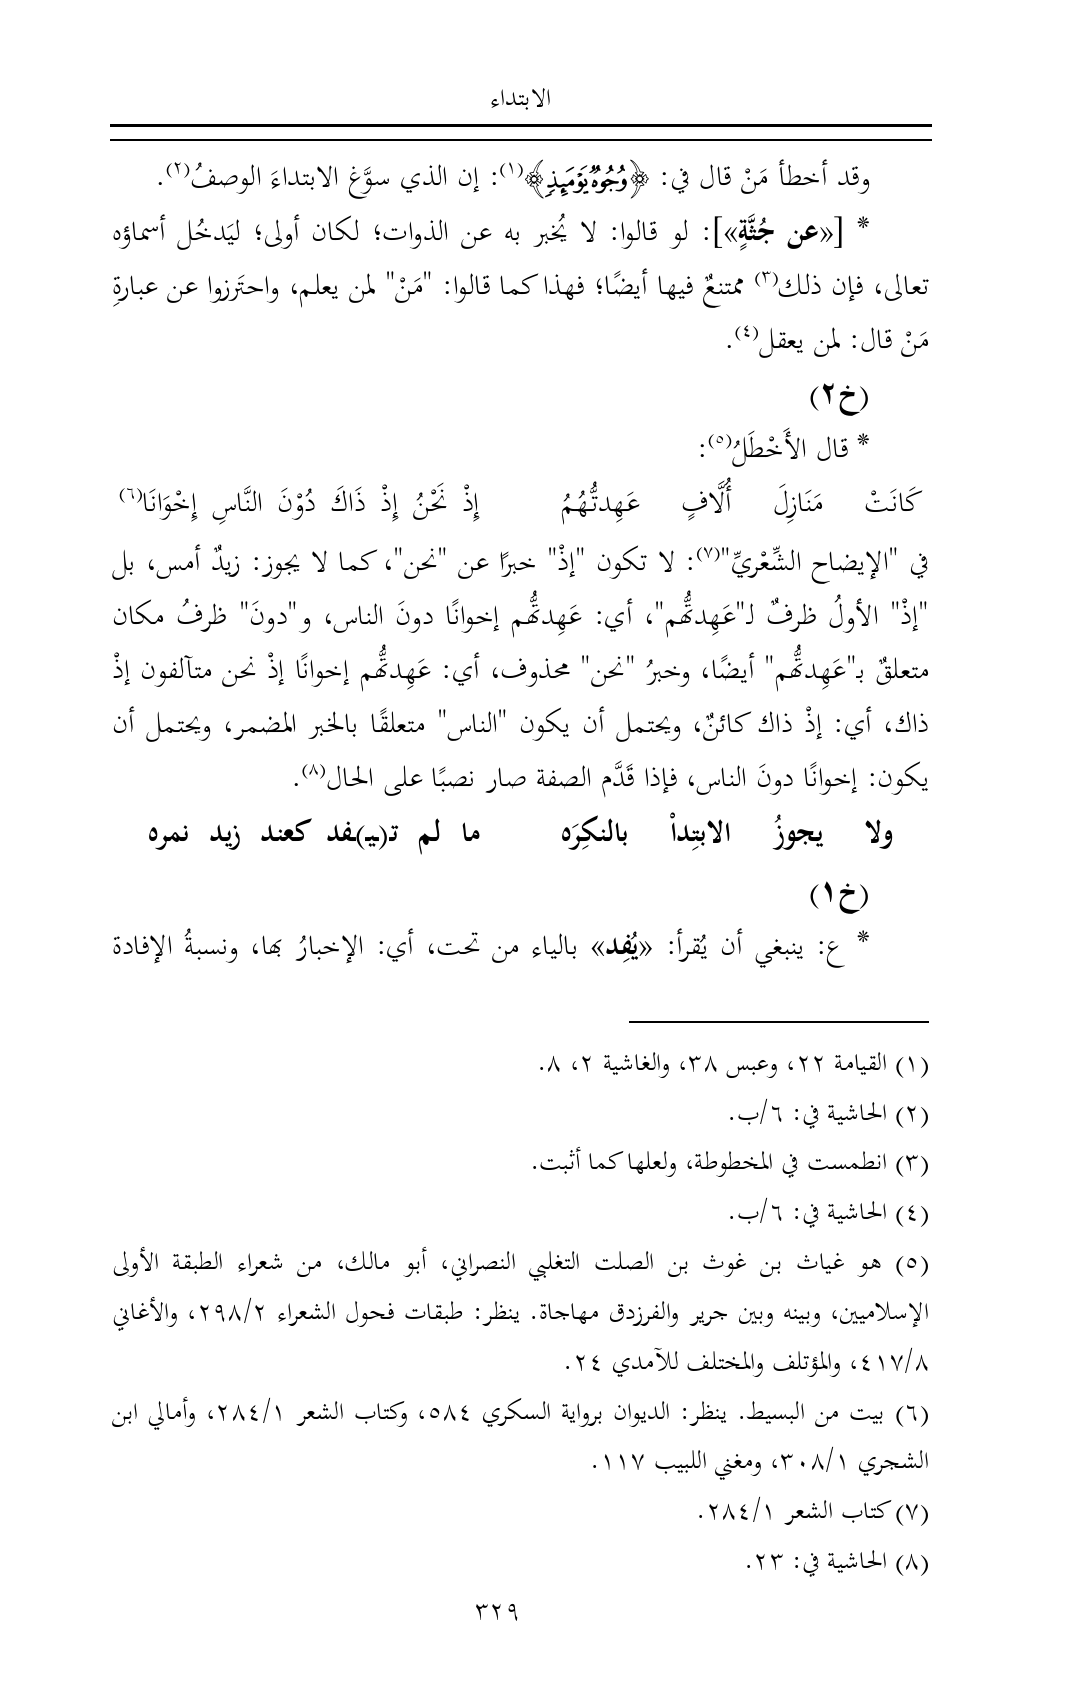 الابتداء
وقد أخطأ مَنْ قال في: ﴿وُجُوهٌ يَوْمَئِذٍ﴾(١): إن الذي سوَّغ الابتداءَ الوصفُ(٢).
* [«عن جُثَّةٍ»]: لو قالوا: لا يُخبر به عن الذوات؛ لكان أولى؛ ليَدخُل أسماؤه
تعالى، فإن ذلك(٣) ممتنعٌ فيها أيضًا؛ فهذا كما قالوا: "مَنْ" لمن يعلم، واحتَرزوا عن عبارةِ
مَنْ قال: لمن يعقل(٤).
(خ٢)
* قال الأَخْطَلُ(٥):
كَانَتْ مَنَازِلَ أُلَّافٍ عَهِدتُّهُمُ إِذْ نَحْنُ إِذْ ذَاكَ دُوْنَ النَّاسِ إِخْوَانَا(٦)
في "الإيضاح الشِّعْريِّ"(٧): لا تكون "إذْ" خبرًا عن "نحن"، كما لا يجوز: زيدٌ أمس، بل
"إذْ" الأولُ ظرفٌ لـ"عَهِدتُّهم"، أي: عَهِدتُّهم إخوانًا دونَ الناس، و"دونَ" ظرفُ مكان
متعلقٌ بـ"عَهِدتُّهم" أيضًا، وخبرُ "نحن" محذوف، أي: عَهِدتُّهم إخوانًا إذْ نحن متآلفون إذْ
ذاك، أي: إذْ ذاك كائنٌ، ويحتمل أن يكون "الناس" متعلقًا بالخبر المضمر، ويحتمل أن
يكون: إخوانًا دونَ الناس، فإذا قَدَّم الصفة صار نصبًا على الحال(٨).
ولا يجوزُ الابتِداْ بالنكِرَه ما لم تـ(يـ)ـفد كعند زيد نمره
(خ١)
* ع: ينبغي أن يُقرأ: «يُفِد» بالياء من تحت، أي: الإخبارُ بها، ونسبةُ الإفادة
(١) القيامة ٢٢، وعبس ٣٨، والغاشية ٢، ٨.
(٢) الحاشية في: ٦/ب.
(٣) انطمست في المخطوطة، ولعلها كما أثبت.
(٤) الحاشية في: ٦/ب.
(٥) هو غياث بن غوث بن الصلت التغلبي النصراني، أبو مالك، من شعراء الطبقة الأولى
الإسلاميين، وبينه وبين جرير والفرزدق مهاجاة. ينظر: طبقات فحول الشعراء ٢٩٨/٢، والأغاني
٤١٧/٨، والمؤتلف والمختلف للآمدي ٢٤.
(٦) بيت من البسيط. ينظر: الديوان برواية السكري ٥٨٤، وكتاب الشعر ٢٨٤/١، وأمالي ابن
الشجري ٣٠٨/١، ومغني اللبيب ١١٧.
(٧) كتاب الشعر ٢٨٤/١.
(٨) الحاشية في: ٢٣.
٣٢٩